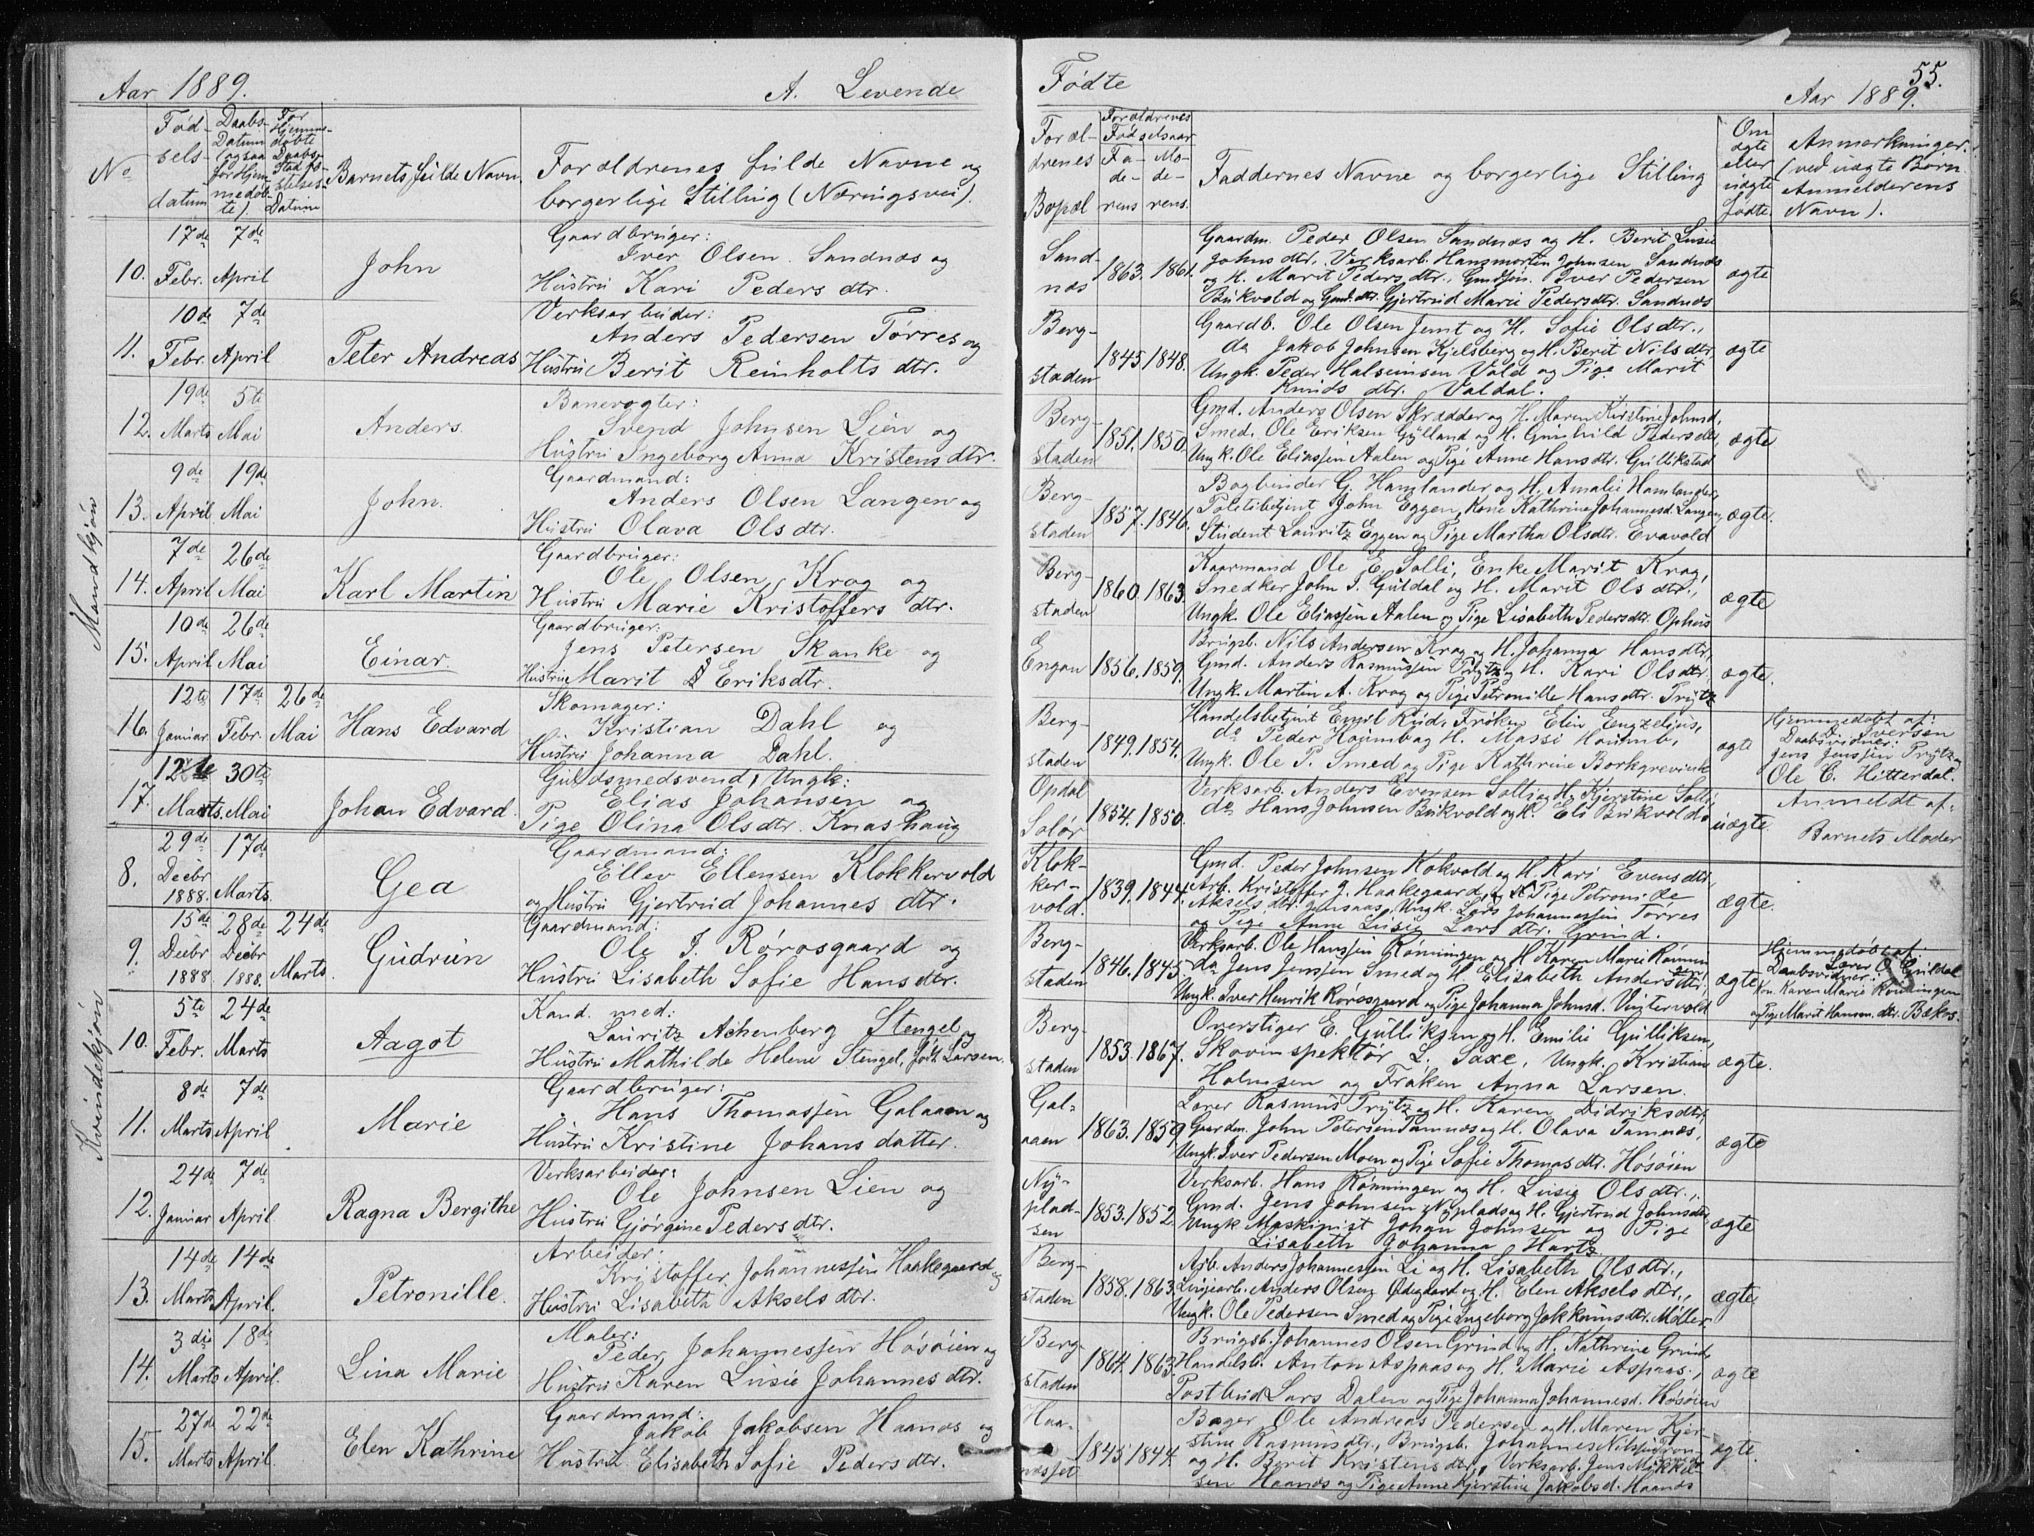 Aar 1889.
A. Levende
Fødte
55.
Aar 1889.
No
Fødselsdatum
Daabs-Datum (ogsaa for Hjemmedøbte).
For Hjemmedøbte Daabs Stadfæstelses-Datum
Barnets fulde Navn
Forældrenes fulde Navne og borgerlige Stilling (Næringsvei).
Forældrenes Bopæl
Forældrenes Fødselsaar
Faderens
Moderens.
Faddernes Navne og borgerlige Stilling
Om ægte eller uægte fødte.
Anmærkninger. (ved uægte Børn Anmelderens Navn).
Mandkjøn
10.
17de Febr.
7de April
John
Gaardbruger:
Iver Olsen Sandnæs og
Hustru Kari Peders dtr.
Sandnæs
1863. 1861.
Gaardm. Peder Olsen Sandnæs og H. Berit Lusie
Johns dtr. Verksarb. Hansmortin Johnsen Sandnæs
og H. Marit Peders dtr., Gmdssøn. Iver Pedersen
Bukvold og Gmd.dtr. Gjertrud Marie Pedersdtr. Sandnæs
ægte
11.
10de Febr.
7de April
Peter Andreas
Verksarbeider:
Anders Pedersen Tørres og
Hustru Berit Reinholts dtr.
Bergstaden
1845. 1848.
Gaardb. Ole Olsen Jemt og H. Sofie Olsdtr.,
do Jakob Johnsen Kjelsberg og H. Berit Nilsdtr,
Ungk. Peder Halseinsen Vold og Pige Marit
Knuds dtr. Valdal.
ægte
12.
19de Marts
5te Mai
Anders.
Banevogter:
Svend Johnsen Lien og
Hustru Ingeborg Anna Kristensdtr.
Bergstaden
1851. 1850.
Gmd. Anders Olsen Skrædder og H. Maren Kirstine Johnsd,
Smed. Ole Eriksen Gylland og H. Gunhild Pedersdtr,
Ungk. Ole Eliassen Aalen og Pige Anne Hansdtr. Gullikstad
ægte
13.
9de April
19de Mai
John.
Gaardmand:
Anders Olsen Langen og
Hustru Olava Olsdtr.
Bergstaden
1857. 1846.
Bogbinder G. Hamlander og H. Amalie Hamlander,
Politibetjent John Eggen, Kone Kathrine Johannesd. Langen,
Student Lauritz Eggen og Pige Martha Olsdtr. Evavold
ægte.
14.
7de April
26de Mai
Karl Martin
Gaardbruger:
Ole Olsen Krog og
Hustru Marie Kristoffers dtr.
Bergstaden
1860. 1863.
Kaarmand Ole E. Solli, Enke Marit Krog,
Snedker John J. Guldal og H. Marit Olsdtr.,
Ungk. Ole Eliassen Aalen og Pige Lisabeth Pedersdtr. Ophus
ægte
15.
10de April
26de Mai
Einar.
Gaardbruger:
Jens Petersen Skanke og
Hustru Marit Eriksdtr.
Engan
1856. 1859.
Brugsb. Nils Andersen Krog og H. Johanna Hansdtr,
Gmd. Anders Rasmussen Trytz og H. Kari Olsdtr.
Ungk. Martin A. Krog og Pige Petronille Hansdtr. Trytz
ægte.
16.
12te Januar
17de Febr.
26de Mai
Hans Edvard
Skomager:
Kristian Dahl og
Hustru Johanna Dahl.
Bergstaden
1849. 1854.
Handelsbetjent Emil Rud, Frøken Elin Engzelius,
do Peder Houmb og H. Massi Houmb,
Ungk. Ole P. Smed og Pige Kathrine Borkgrevink
ægte
Hjemmedøbt af:
Iversen
Daabsvidner:
Jens Jenssen Trytz og
Ole C. Hitterdal.
17.
12te Marts.
30te Mai
Johan Edvard.
Guldsmedsvend, Ungk:
Elias Johansen og
Pige Olina Olsdtr. Knashaug
Opdal
Solør
1854. 1850.
Verksarb. Anders Evensen Solli og H. Kjerstine Solli,
do Hans Johnsen Bukvold og K. Eli Bukvold
uægte.
Anmeldt af:
Barnets Moder
Kvindekjøn
8.
29de Decbr 1888.
17de Marts.
Gea
Gaardmand:
Ellev Ellensen Klokkervold
og Hustru Gjertrud Johannes dtr.
Klokkervold.
1839. 1844.
Gmd. Peder Johnsen Kokvold og H. Kari Evensdtr,
Arb. Kristoffer J. Haakegaard og Pige Petronille
Aksels dtr. Jensaas, Ungk. Lars Johannessen Tørres
og Pige Anne Lusie Lars dtr. Grind.
ægte.
9.
15de Decbr 1888.
28de Decbr 1888.
24de Marts.
Gudrun
Gaardmand:
Ole J. Rørosgaard og
Hustru Lisabeth Sofie Hansdtr.
Bergstaden
1846. 1845.
Verksarb. Ole Hanssen Rønningen og H. Karen Marie Rønningen
do Jens Jenssen Smed og H. Elisabeth Andersdtr,
Ungk. Iver Henrik Rørosgaard og Pige Johanna Johnsd. Vintervold
ægte
Hjemmedøbt af
Lærer O. Guldal
Daabsvidner:
Kon. Karen Marie Rønningen
og Pige Marit Hansen. dtr. Bækos.
10.
5te Febr.
24de Marts
Aagot
Kand. med:
Lauritz Achenberg Stengel og
Hustru Mathilde Helene Stengel, født Larsen.
Bergstaden
1853. 1867.
Overstiger E. Gulliksen og H. Emilie Gulliksen,
Skovinspektør L. Saxe, Ungk. Kristian
Holmsen og Frøken Anna Larsen.
ægte.
11.
8de Marts
7de April
Marie
Gaardbruger:
Hans Thomassen Galaaen og
Hustru Kristine Johans datter.
Galaaen
1863. 1859.
Lærer Rasmus Trytz og H. Karen Didriksdtr,
Gaardm. John Petersen Tamnæs og H. Olava Tamnæs,
Ungk. Iver Pedersen Moen og Pige Sofie Thomasdtr. Høsøien
ægte
12.
24de Januar
7de April
Ragna Bergithe
Verksarbeider:
Ole Johnsen Lien og
Hustru Gjørgine Pedersdtr.
Nypladsen
1853. 1852
Verksarb. Hans Rønningen og H. Lusie Olsdtr.,
Gmd. Jens Johnsen Nyplads og H. Gjertrud Johnsdtr,
Ungk Maskinist Johan Johnsen og Pige
Lisabeth Johanna Hartz
ægte
13.
14de Marts
14de April.
Petronille.
Arbeider:
Kristoffer Johannessen Haakegaard og
Hustru Lisabeth Aksels dtr.
Bergstaden
1858. 1863.
Arb. Anders Johannessen Li og H. Lisabeth Olsdtr.,
Linjearb. Anders Olsen Ødegaard og H. Elen Akselsdtr.,
Ungk. Ole Pedersen Smed og Pige Ingeborg Jokkumsdtr. Møller
ægte
14.
3die Marts
18de April.
Lina Marie
Maler:
Peder Johannessen Høsøien og
Hustru Karen Lusie Johannes dtr.
Bergstaden
1864. 1863.
Brugsb. Johannes Olsen Grind og H. Kathrine Grind,
Handelsb. Anton Aspaas og H. Marie Aspaas.,
Postbud Lars Dalen og Pige Johanna Johannesd. Høsøien
ægte
15.
27de Marts
22de April.
Elen Kathrine
Gaardmand:
Jakob Jakobsen Haanæs og
Hustru Elisabeth Sofie Pedersdtr.
Haanæsset
1845. 1844.
Bager. Ole Andreas Pedersen og H. Maren Kjerstine
Rasmusdtr., Brugsb. Johannes Nilssen
og H. Berit Kristensdtr, Verksarb. Jens Mikkelsen
Haanæs og Pige Anne Kjerstine Jakobsd. Haanæs
ægte.